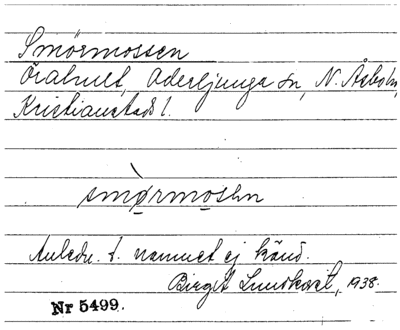 Smörmossen
Örahult, Oderljunga sn, N. Åsbo hd,
Kristianstads l.
smòrmosən
Anledn. t. namnet ej känd.
Birgit Lundkvist, 1938.
Nr 5499.